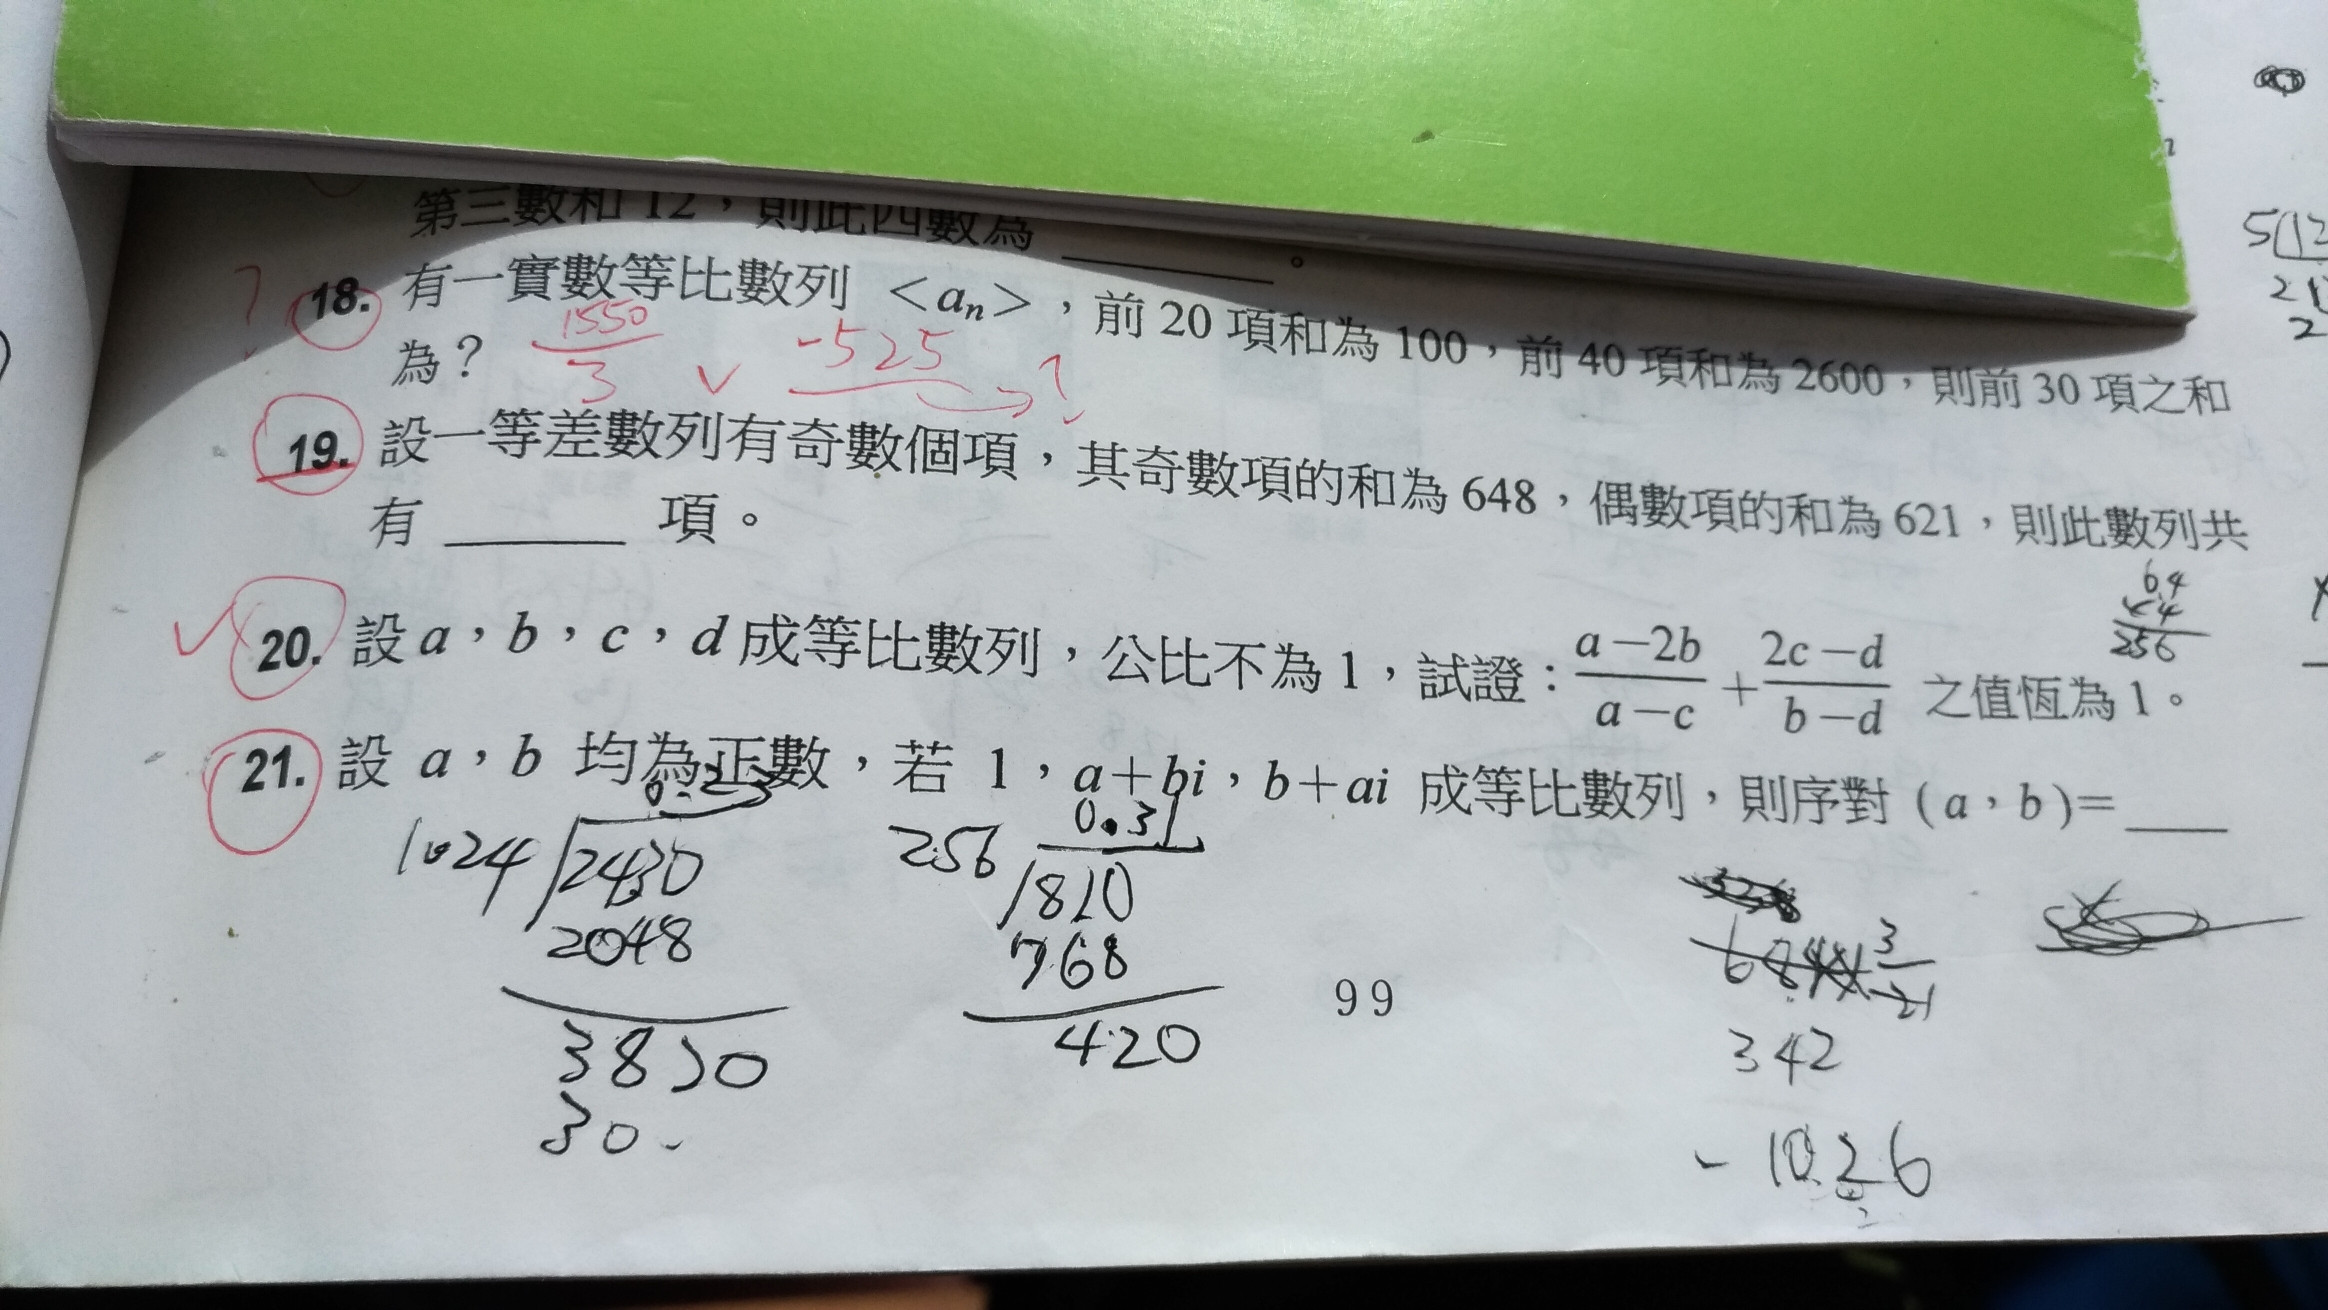 第三數和12，則此四數為______。
18. 有一實數等比數列 <aₙ>，前 20 項和為 100，前 40 項和為 2600，則前 30 項之和
為？ 1550/3 ✓ -525 → ?
19. 設一等差數列有奇數個項，其奇數項的和為 648，偶數項的和為 621，則此數列共
有 ______ 項。
64
×4
256
20. 設 a，b，c，d 成等比數列，公比不為 1，試證：(a−2b)/(a−c) + (2c−d)/(b−d) 之值恆為 1。
21. 設 a，b 均為正數，若 1，a+bi，b+ai 成等比數列，則序對 (a，b)=___
0.23
1024 2430
2048
3820
30
0.31
256 810
768
420
99
342
-1026